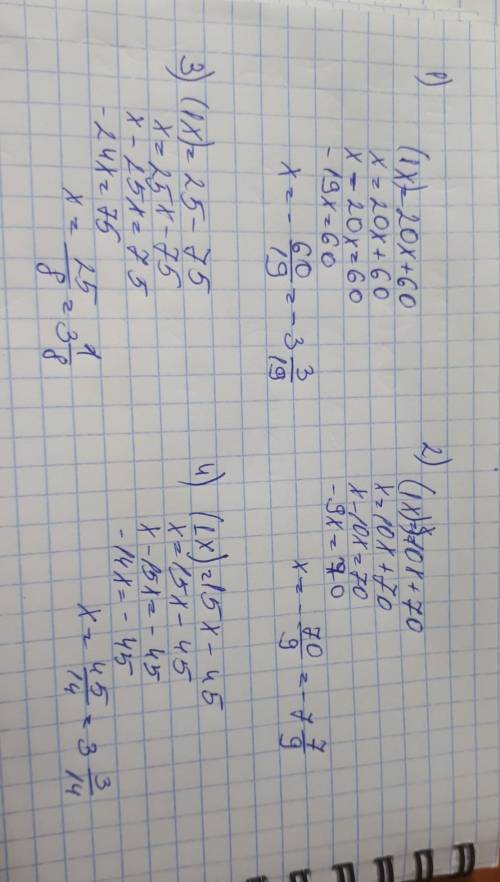 1)
(1x)=20x+60
x=20x+60
x=20x=60
-19x=60
x=-60/19=-3 3/19
2)
x=10x+70
x-10x=70
-9x=70
x=-70/9=-7 7/9
3) (1x)=25-75
x=25x-75
x-25x=75
-24x=75
x=25/8=3 1/8
4) (1x)=15x-45
x=15x-45
x-15x=-45
-14x=-45
x=45/14=3 3/14